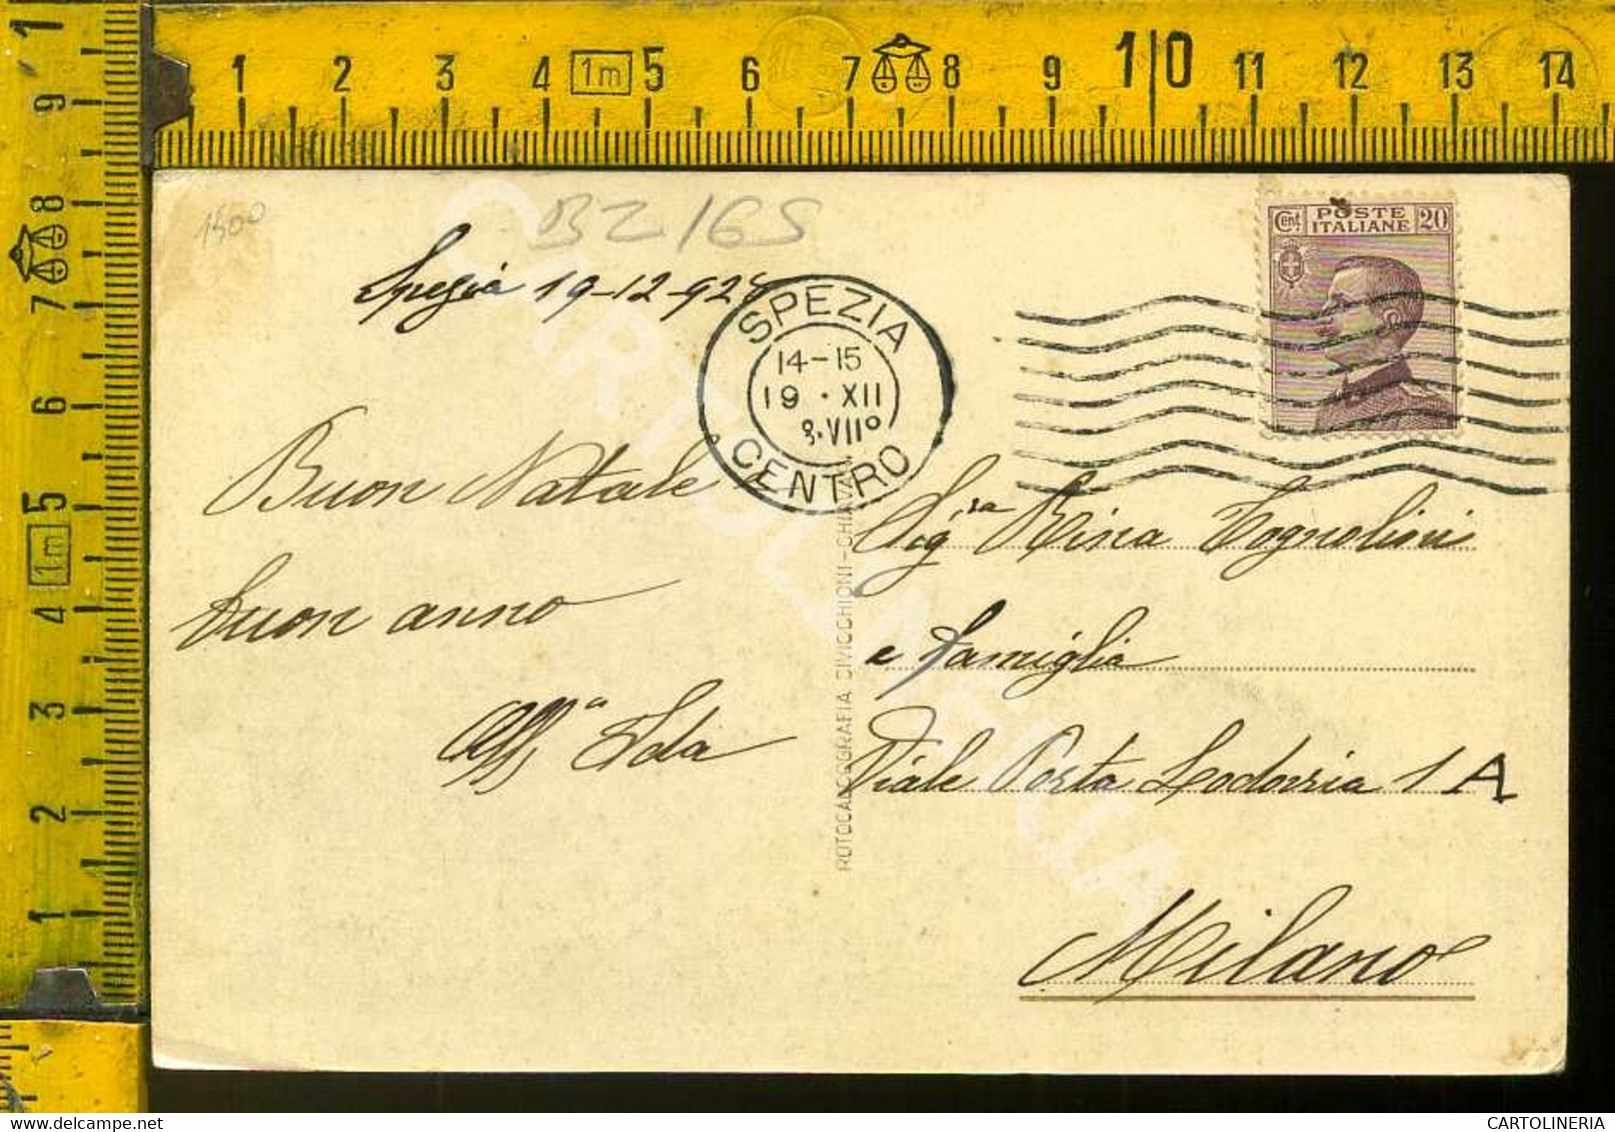 1 2 3 4 1m 5 6 7 8 9 10 11 12 13 14
1 9 8 7 6 5 1m 4 3 2 1
1500
BZ165
Spezia 19-12-928
SPEZIA
14-15
19 · XII
8·VII°
CENTRO
Cent. POSTE ITALIANE 20
Buon Natale
buon anno
Aff.a Ida
ROTOCALCOGRAFIA CIVICCHIONI - CHIAVARI
Sig.ra Rina Tognolini
e famiglia
Viale Porta Lodovia 1 A
Milano
CARTOLINERIA
CARTOLINERIA